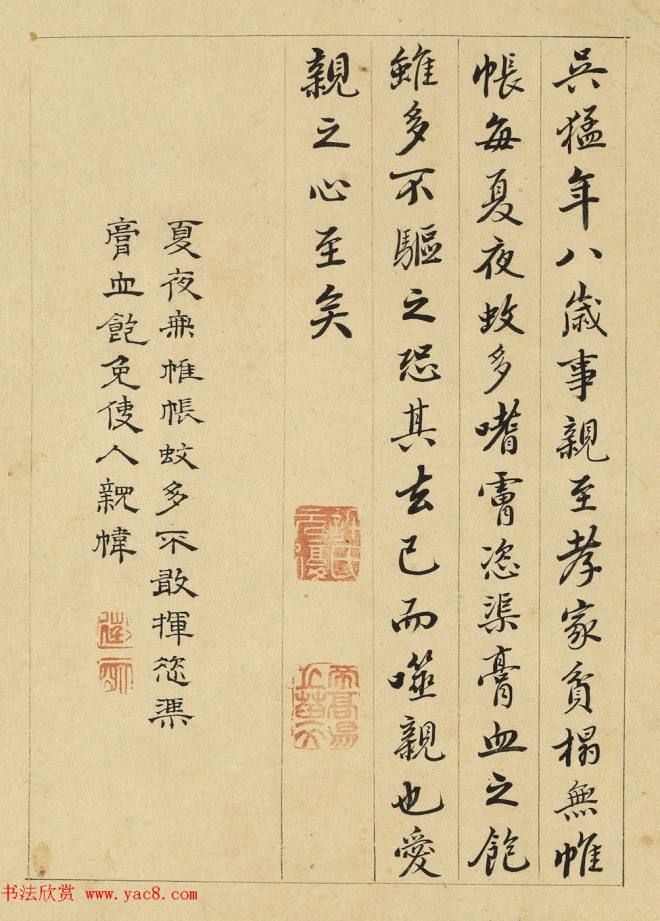 吳猛年八歲事親至孝家貧榻無帷
帳每夏夜蚊多嘈膚恣渠膏血之飽
雖多不驅之恐其去己而噬親也愛
親之心至矣
夏夜無帷帳蚊多不敢揮恣渠
膏血飽免使人親幃
书法欣赏 www.yac8.com